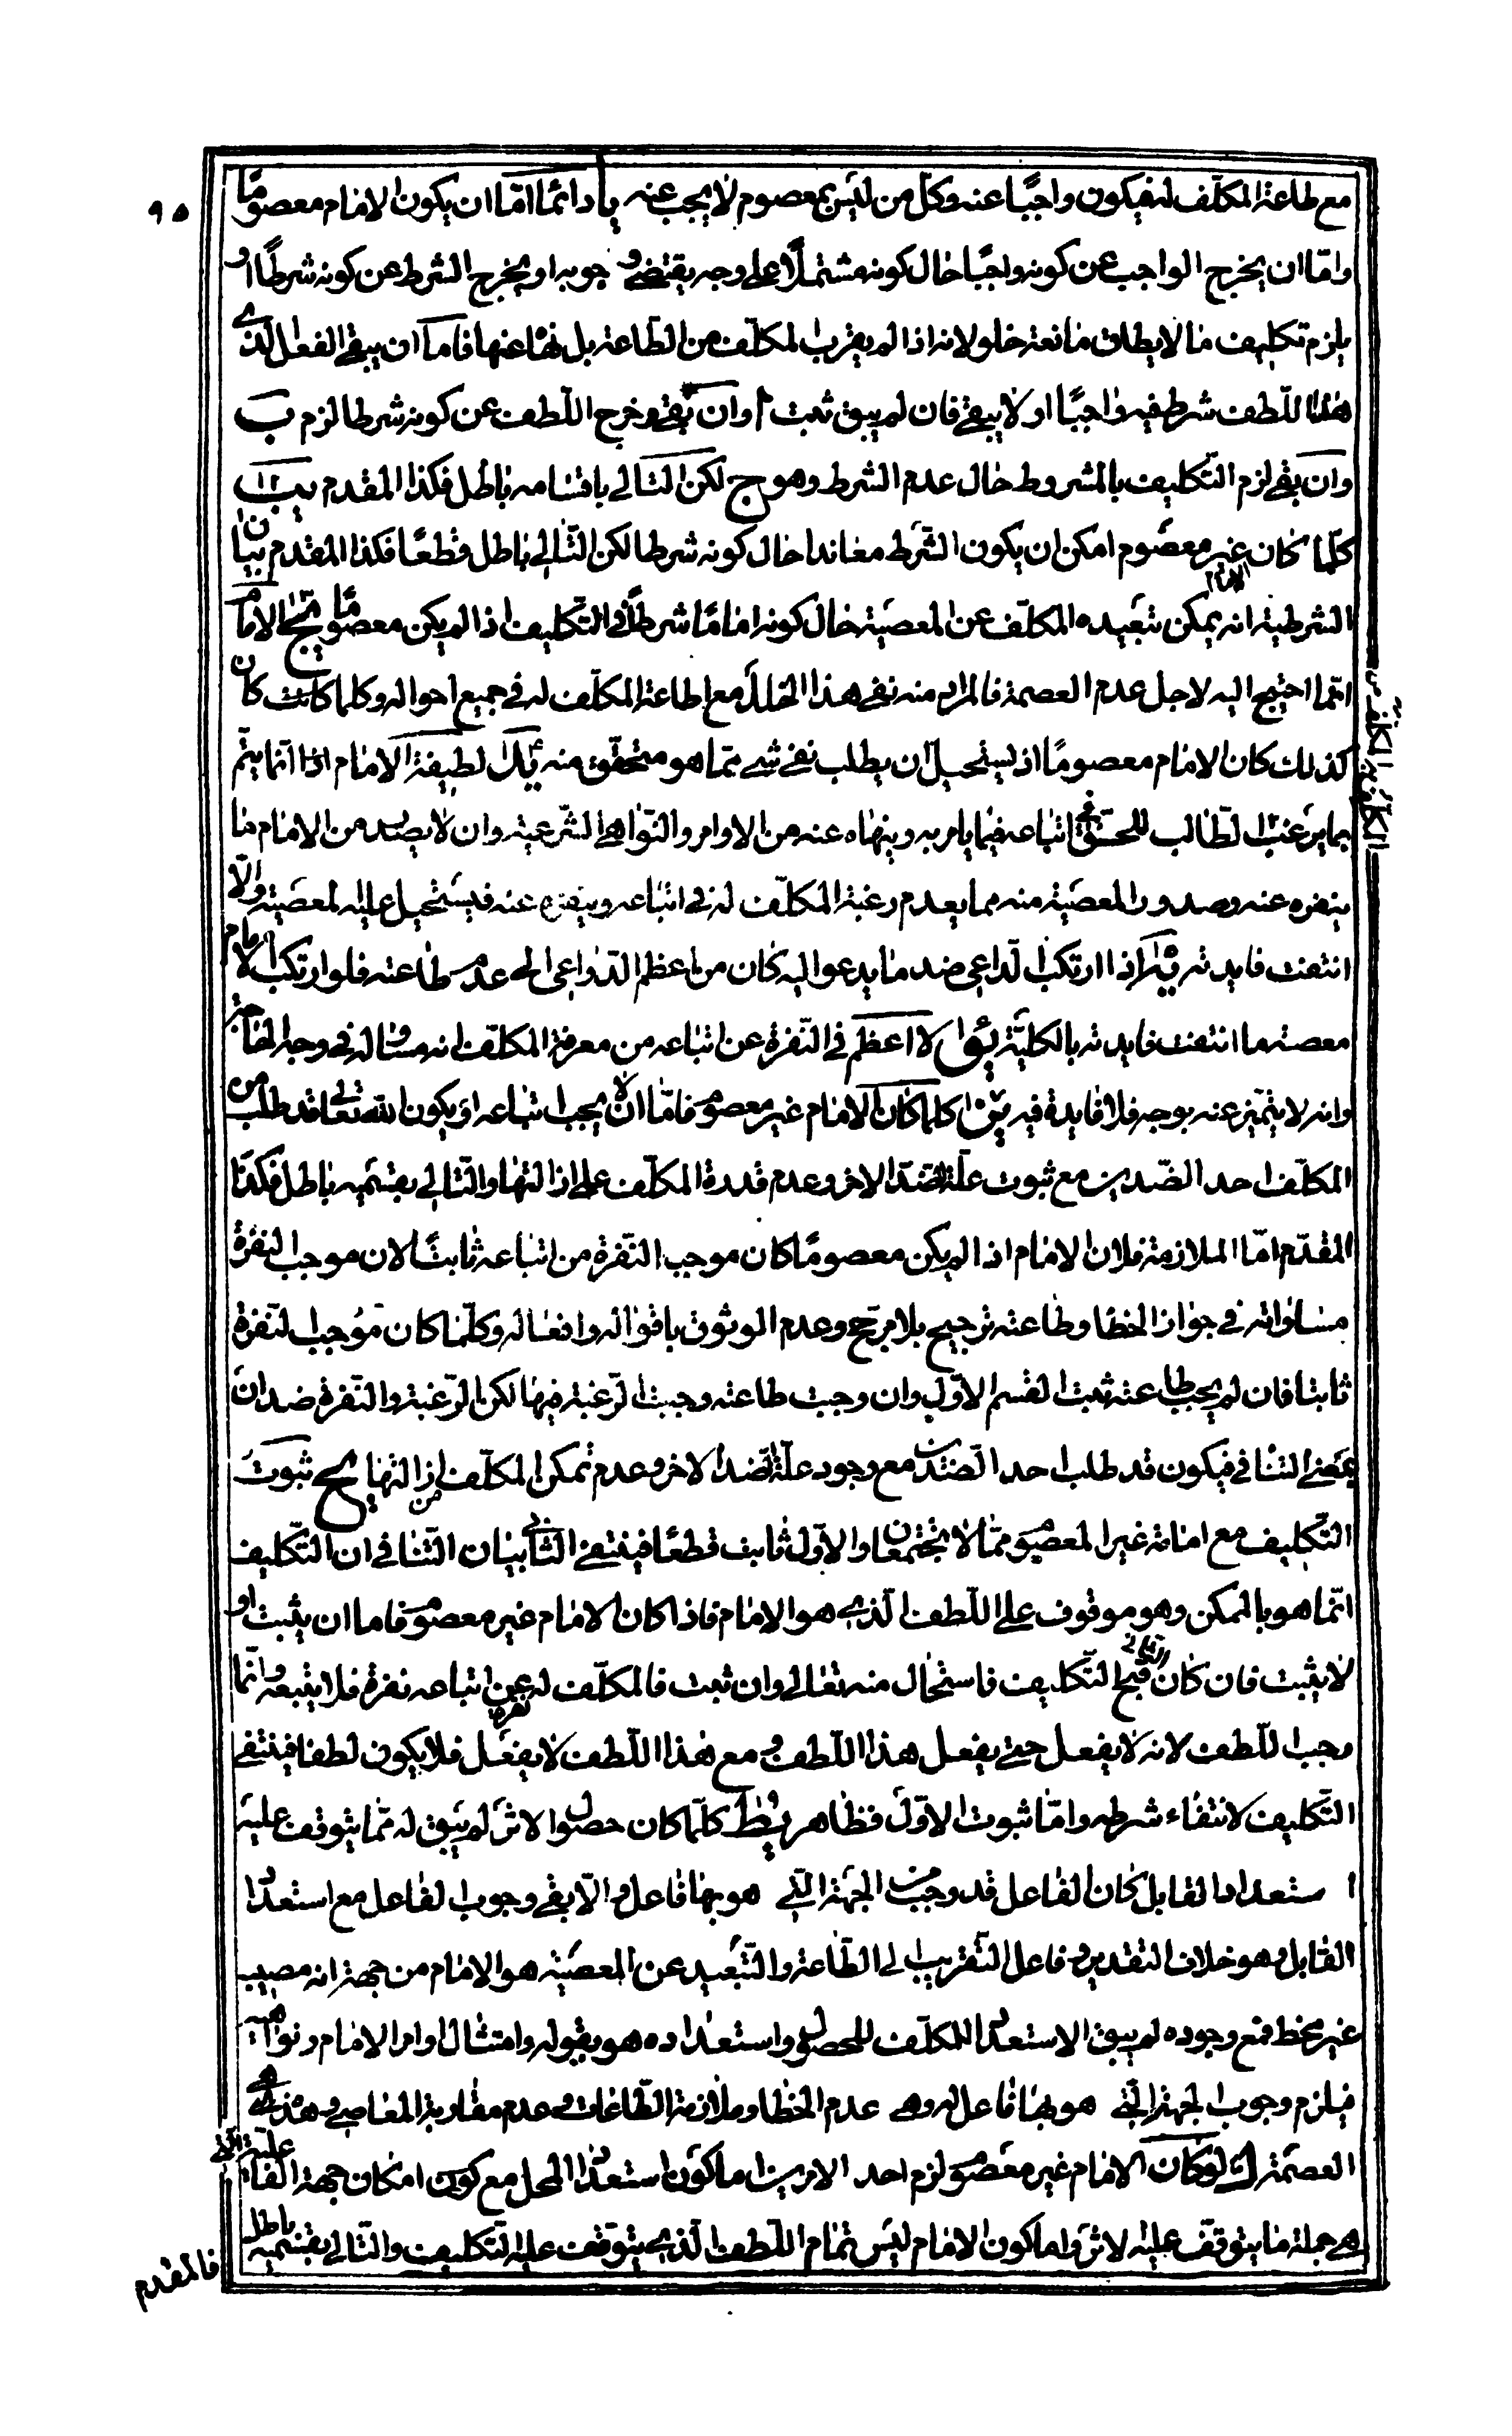 ٩٥
مع طاعة المكلّف له فيكون واجبًا عنه وكل من ليس بمعصوم لا يجب عنه يا دائما امّا ان يكون الامام معصومًا
وامّا ان يخرج الواجب عن كونه واجبًا حال كونه مشتملًا على وجه يقتضى وجوبه او يخرج الشرط عن كونه شرطًا او
يلزم تكليف ما لا يطاق مانعة خلو لانه اذا لم يقرب المكلّف من الطّاعة بل نهى عنها فاما ان يبقى الفعل الّذى
هذا اللّطف شرط فيه واجبًا او لا يبقى فان لم يبق ثبت ا وان بقى وخرج اللّطف عن كونه شرطا لزم ب
وان بقى لزم التّكليف بالمشروط حال عدم الشرط وهو ج لكن التالى باقسامه باطل فكذا المقدم يب
كلّما كان غير معصوم امكن ان يكون الشّرط معاندا حال كونه شرطا لكن التّالى باطل قطعًا فكذا المقدم بيان
الشرطية انه يمكن تبعيده المكلّف عن المعصية حال كونه امامًا شرطًا فى التّكليف اذا لم يكن معصومًا يج الامام
انّما احتيج اليه لاجل عدم العصمة فالمراد منه نفى هذا الخلل مع اطاعة المكلّف له فى جميع احواله وكلما كانت كان
كذلك كان الامام معصومًا اذ يستحيل ان يطلب نفى شىء ممّا هو متحقّق منه يد لطيفة الامام انما يتمّ
بما يرغب الطّالب للحق فى اتباعه فيما يامر به وينهاه عنه من الاوامر والنّواهى الشّرعيّة وان لا يصدر من الامام ما
ينفره عنه وصدور المعصية منه مما يعدم رغبة المكلّف له فى اتباعه وينفره عنه فيستحيل عليه المعصية والّا
انتفت فايدته يه اذا ارتكب الدّاعى ضد ما يدعو اليه كان من اعظم الدّواعى الى عدم طاعته فلو ارتكب الامام
معصية ما انتفت فايدته بالكليّة يو لا اعظم فى النّفرة عن اتباعه من معرفة المكلّف انه مساو له فى وجه الحاجة
وانه لا يتميّز عنه بوجه فلا فايدة فيه يز كلما كان الامام غير معصوم فامّا ان لا يجب اتباعه او يكون الله تعالى قد طلب من
المكلّف احد الضّدين مع ثبوت علّة الضّدّ الاخر وعدم قدرة المكلّف على ازالتها والتّالى بقسميه باطل فكذا
المقدّم امّا الملازمة فلان الامام اذا لم يكن معصومًا كان موجب النّفرة من اتباعه ثابتًا لان موجب النفرة
مساواته فى جواز الخطا وطاعته ترجيح بلا مرجح وعدم الوثوق باقواله وافعاله وكلّما كان موجب النّفرة
ثابتا فان لم يجب طاعته ثبت القسم الاوّل وان وجبت طاعته وجبت الرّغبة فيها لكن الرّغبة والنّفرة ضدان
بمعنى التّنافى فيكون قد طلب احد الضّدّين مع وجود علّة الضّد الاخر وعدم تمكن المكلّف من ازالتها يح ثبوت
التّكليف مع امامة غير المعصوم ممّا لا يجتمعان والاوّل ثابت قطعًا فينتفى الثّانى بيان التّنافى ان التّكليف
انّما هو بالممكن وهو موقوف على اللّطف الّذى هو الامام فاذا كان الامام غير معصوم فاما ان يثبت او
لا يثبت فان كان الثانى قبح التّكليف فاستحال منه تعالى وان ثبت فالمكلّف له عن اتباعه نفرة فلا يتبعه وانّما
وجب اللّطف لانه لا يفعل حتى يفعل هذا اللّطف و مع هذا اللّطف لا يفعل فلا يكون لطفا فينتفى
التّكليف لانتفاء شرطه وامّا ثبوت الاوّل فظاهر يط كلّما كان حصول الاثر لم يبق له ممّا يتوقف عليه
استعداد القابل كان الفاعل قد وجبت الجهة الّتى هو بها فاعل والّا بقى وجوب الفاعل مع استعداد
القابل وهو خلاف التقدير وفاعل التّقريب الى الطّاعة والتّبعيد عن المعصية هو الامام من جهة انه مصيب
غير مخط فمع وجوده لم يبق الا استعداد المكلّف للحصول واستعداده هو بقوله وامتثال اوامر الامام ونواهيه
فيلزم وجوب الجهة الّتى هو بها فاعل له وهى عدم الخطا وملازمة الطّاعات وعدم مقاربة المعاصى وهذه هى
العصمة ك لو كان الامام غير معصوم لزم احد الامرين اما كون استعداد المحل مع كون امكان جهة الفاعلية الّتى
هى جملة ما يتوقّف عليه الاثر واما كون الامام ليس تمام اللّطف الّذى يتوقف عليه التّكليف والتّالى بقسميه باطل
فالمقدم